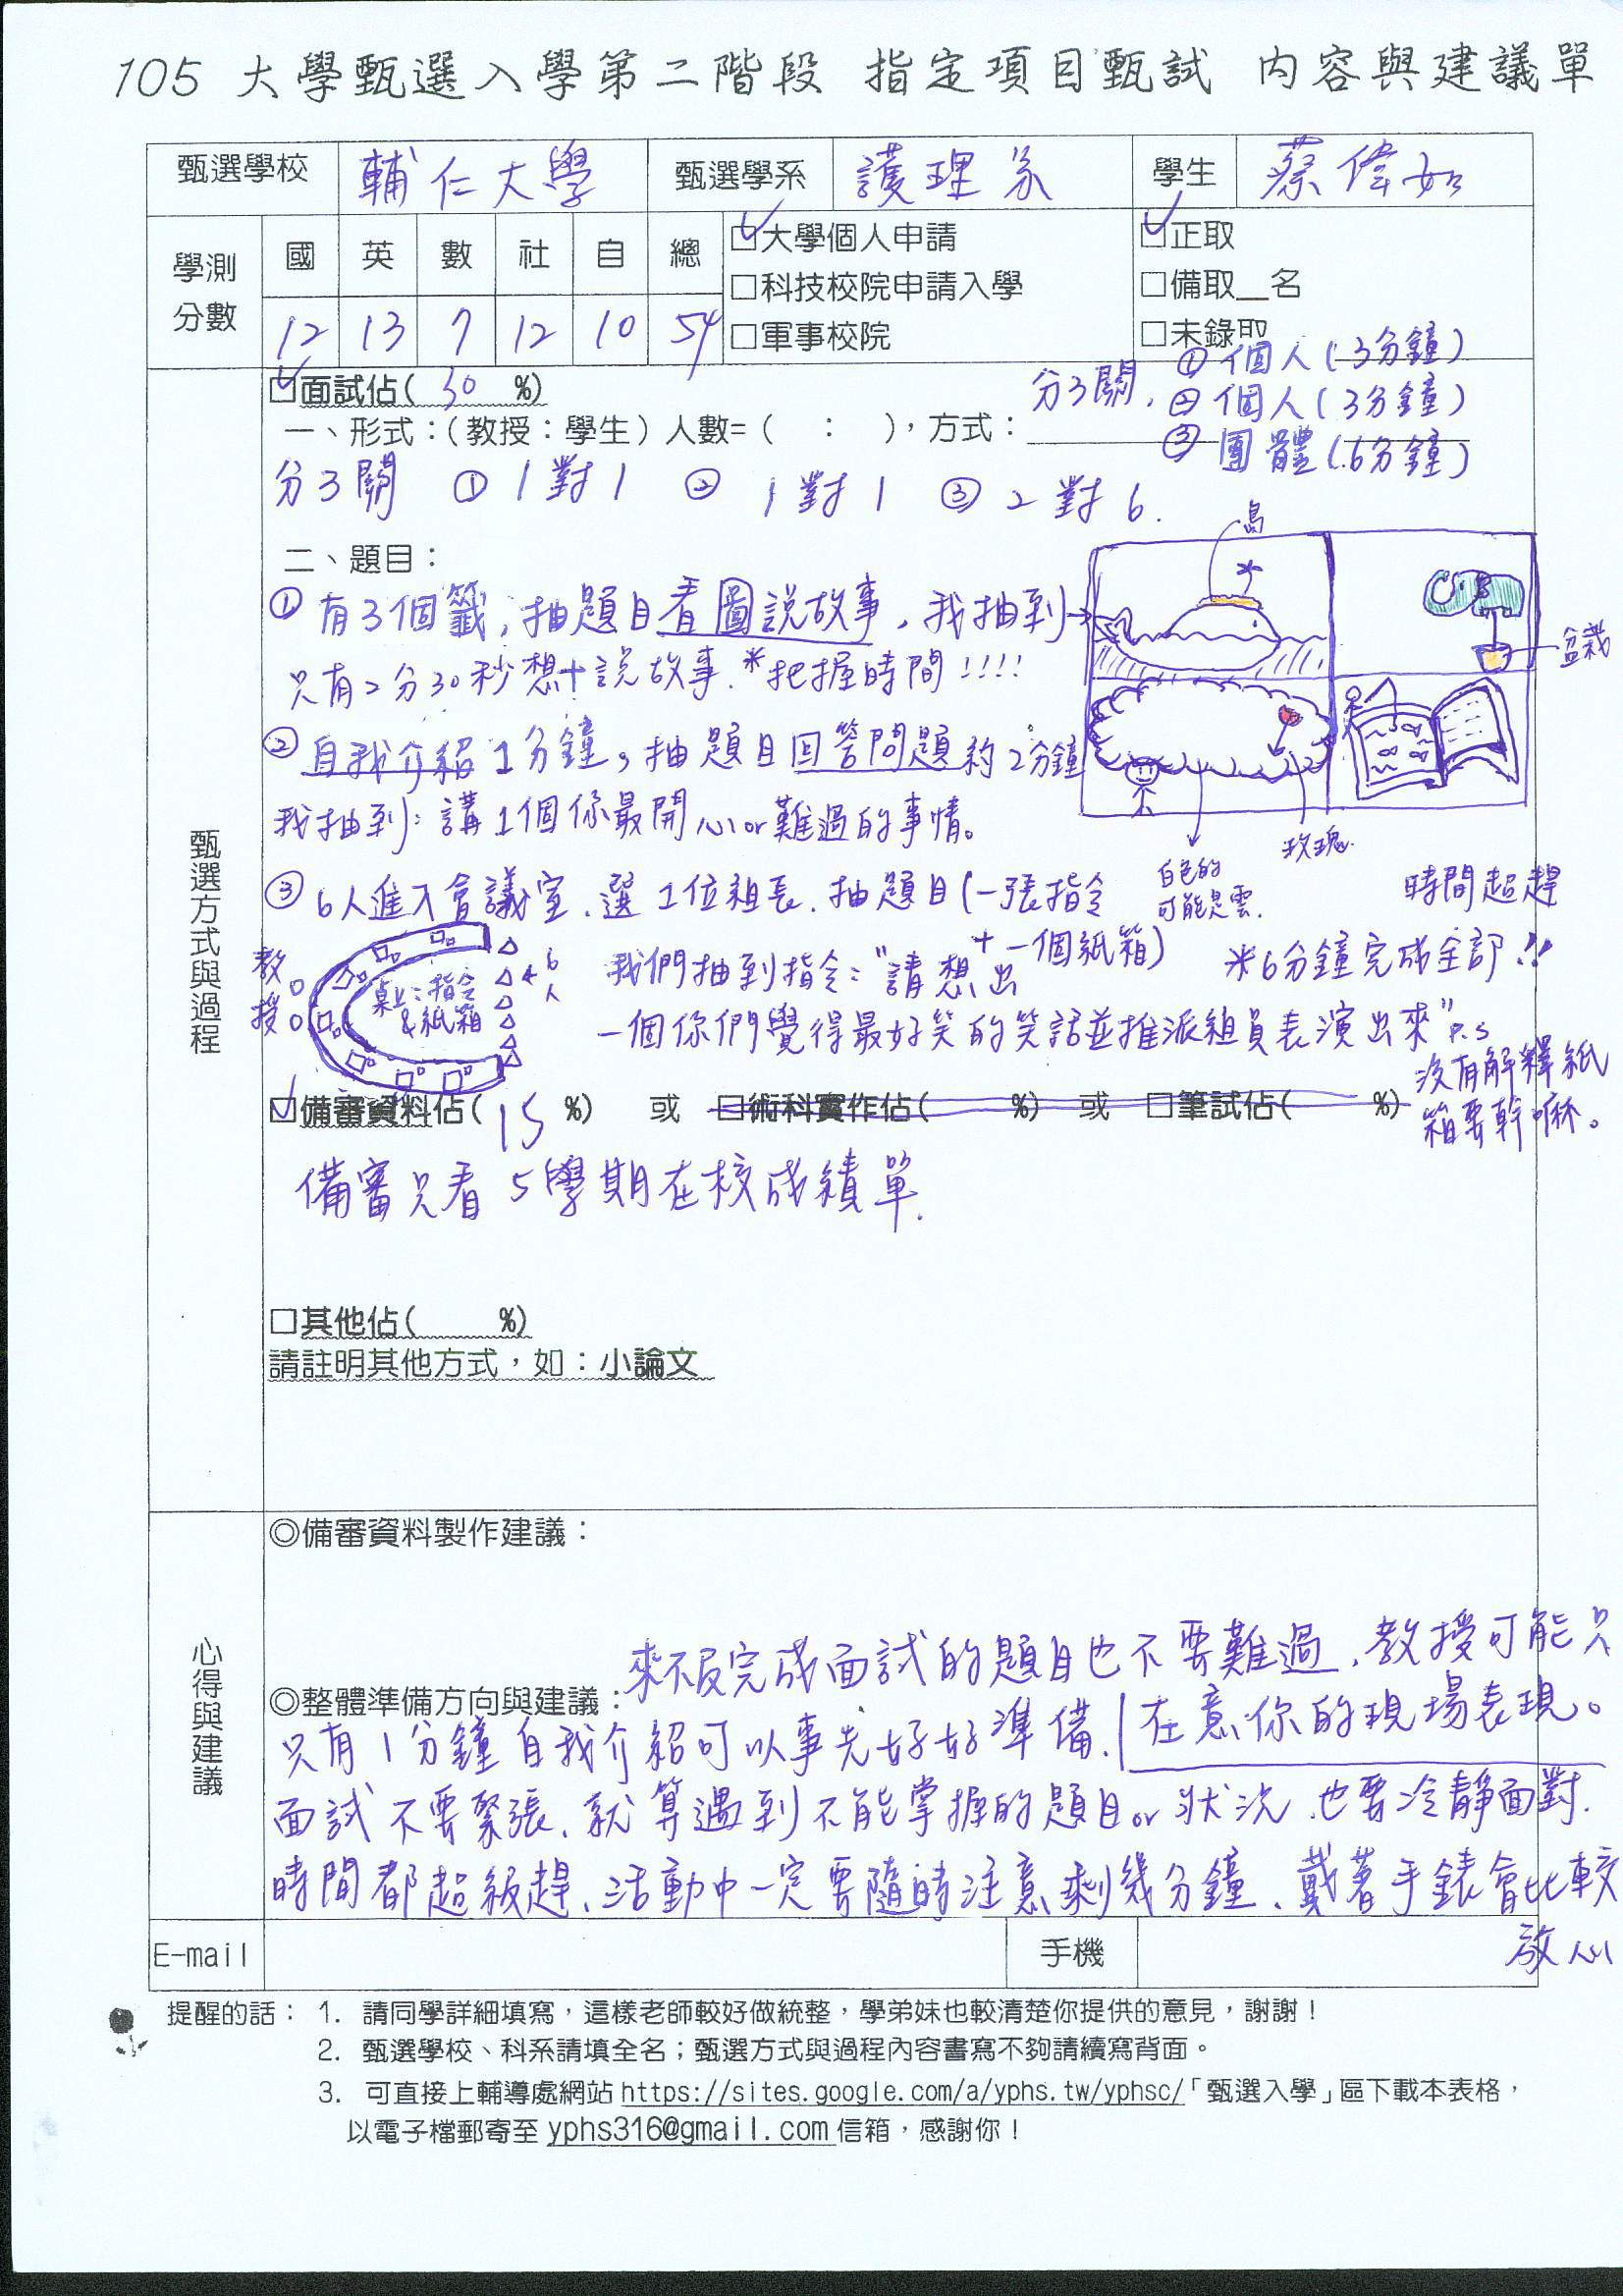 105 大學甄選入學第二階段 指定項目甄試 內容與建議單
甄選學校 輔仁大學 甄選學系 護理系 學生 蔡偉如
學測分數 國 英 數 社 自 總
12 13 7 12 10 54
☑大學個人申請
□科技校院申請入學
□軍事校院
☑正取
□備取__名
□未錄取
甄選方式與過程
☑面試佔( 30 %)
一、形式:(教授:學生)人數=( : ),方式:
分3關. ①個人(3分鐘)
②個人(3分鐘)
③團體(6分鐘)
分3關 ①1對1 ②1對1 ③2對6.
二、題目:
①有3個籤,抽題目看圖說故事,我抽到→
只有2分30秒想+說故事.*把握時間!!!!
島
盆栽
玫瑰
白色的
可能是雲.
②自我介紹1分鐘,抽題目回答問題約2分鐘
我抽到:講1個你最開心or難過的事情。
③6人進入會議室.選1位組長.抽題目(一張指令
+一個紙箱)
時間超趕
*6分鐘完成全部!!
教授
桌上:指令
&紙箱
6人
我們抽到指令:"請想出
一個你們覺得最好笑的笑話並推派組員表演出來"P.S
沒有解釋紙
箱要幹嘛。
☑備審資料佔( 15 %) 或 □術科實作佔( %) 或 □筆試佔( %)
備審只看5學期在校成績單.
□其他佔( %)
請註明其他方式,如:小論文
心得與建議
◎備審資料製作建議:
◎整體準備方向與建議:
來不及完成面試的題目也不要難過.教授可能只
在意你的現場表現。
只有1分鐘自我介紹可以事先好好準備.
面試不要緊張.就算遇到不能掌握的題目or狀況.也要冷靜面對.
時間都超級趕.活動中一定要隨時注意剩幾分鐘.戴著手錶會比較
放心
E-mail 手機
提醒的話: 1. 請同學詳細填寫,這樣老師較好做統整,學弟妹也較清楚你提供的意見,謝謝!
2. 甄選學校、科系請填全名;甄選方式與過程內容書寫不夠請續寫背面。
3. 可直接上輔導處網站 https://sites.google.com/a/yphs.tw/yphsc/「甄選入學」區下載本表格,
以電子檔郵寄至 yphs316@gmail.com 信箱,感謝你!